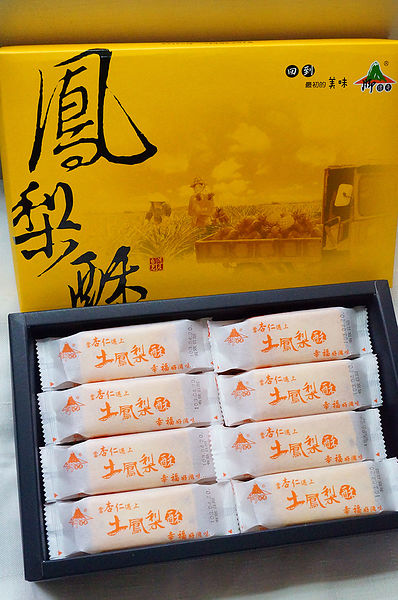 鳳梨酥
回到
最初的美味
®
當杏仁遇上
土鳳梨酥
幸福好滋味
當杏仁遇上
土鳳梨酥
幸福好滋味
當杏仁遇上
土鳳梨酥
幸福好滋味
當杏仁遇上
土鳳梨酥
幸福好滋味
當杏仁遇上
土鳳梨酥
幸福好滋味
當杏仁遇上
土鳳梨酥
幸福好滋味
當杏仁遇上
土鳳梨酥
幸福好滋味
當杏仁遇上
土鳳梨酥
幸福好滋味